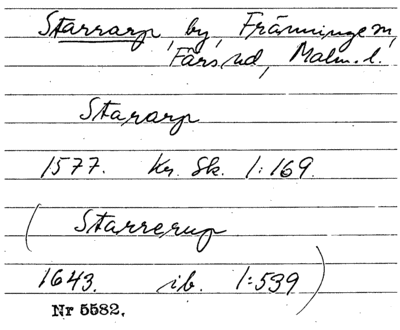 Starrarp, by, Fränninge sn,
Färs hd, Malm. l.
Stararp
1577. Kr. Sk. 1:169.
(Starrerup
1643. ib. 1:539)
Nr 5582.